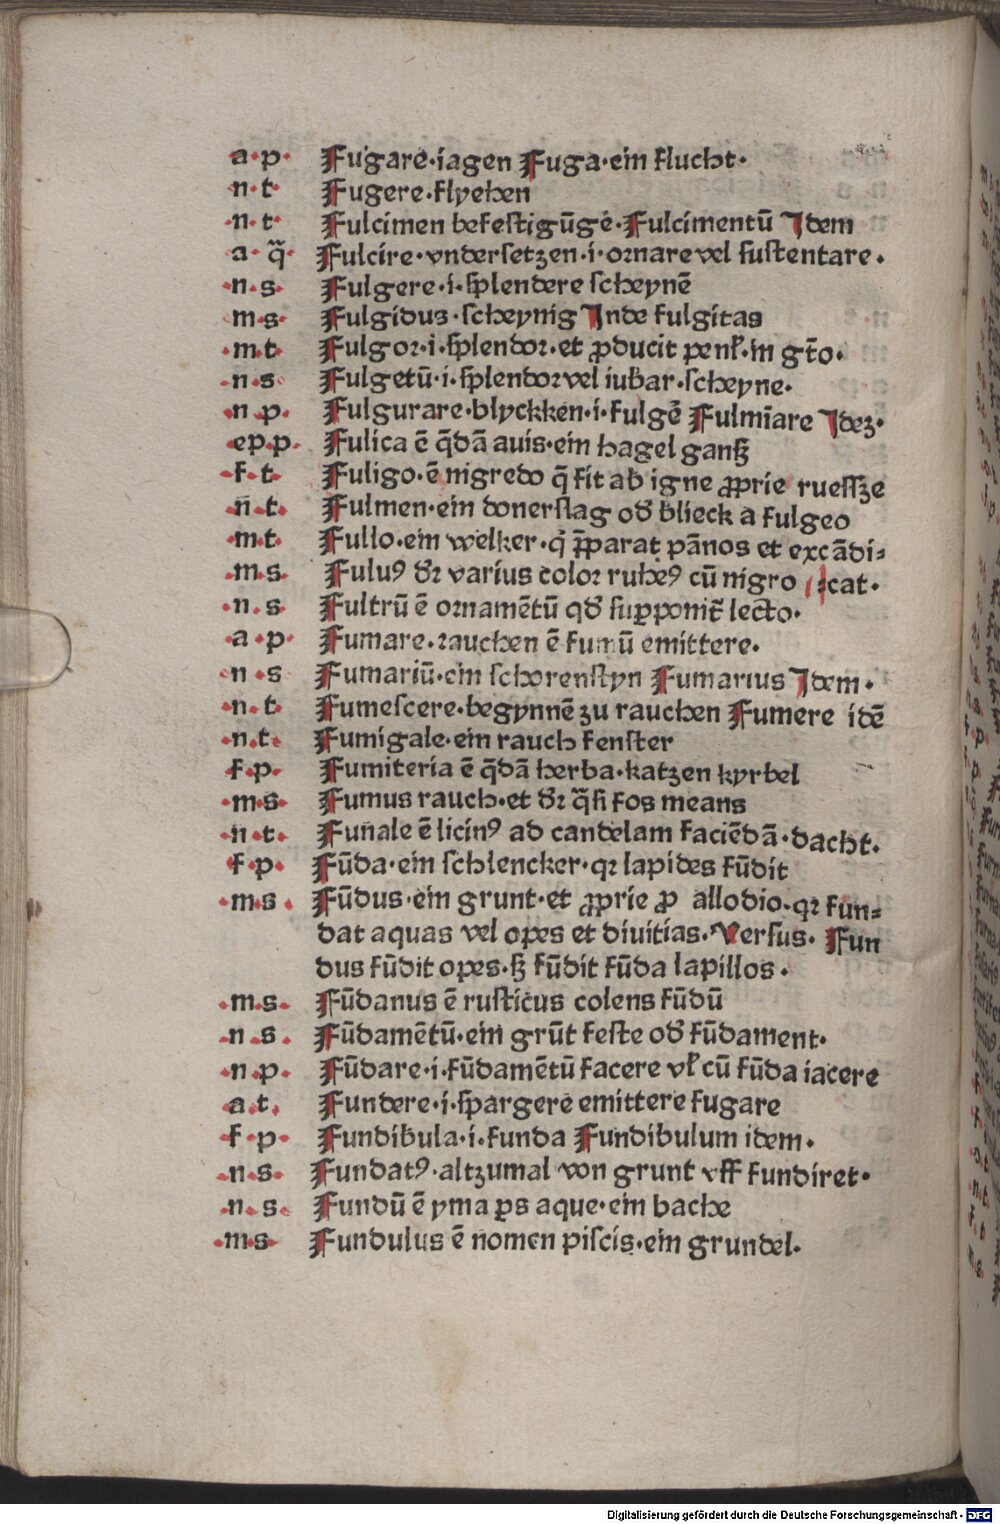 a·p· Fugare·iagen Fuga·ein flucht·
n·t· Fugere·flyehen
·n·t· Fulcimen befestigūgē·Fulcimentū Idem
a·q̄· Fulcire·vndersetzen·i·ornare vel sustentare·
·n·s· Fulgere·i·splendere scheynē
m·s· Fulgidus·scheynig Inde fulgitas
·m·t· Fulgor·i·splendor·et ꝓducit penl̛·in gt̄o·
·n·s· Fulgetū·i·splendor vel iubar·scheyne·
·n·p· Fulgurare·blyckken·i·fulgē Fulmīare Idez·
·ep·p· Fulica ē q̄dā auis·ein hagel ganß
·f·t· Fuligo·ē nigredo q̄ fit ab igne ꝓprie ruessze
·n·t· Fulmen·ein donerslag od̛ blieck a fulgeo
·m·t· Fullo·ein welker·q̇ p̄parat pānos et excādi=
·m·s· Fuluꝰ dr̛ varius color rubeꝰ cū nigro cat·
·n·s· Fultrū ē ornamētū qd̛ supponit̛ lecto·
·a·p· Fumare·rauchen ē fumū emittere·
·n·s Fumariū·ein schorenstyn Fumarius Idem·
·n·t· Fumescere·begynnē zu rauchen Fumere idē
·n·t· Fumigale·ein rauch fenster
·f·p· Fumiteria ē q̄dā herba·katzen kyrbel
·m·s· Fumus rauch·et dr̛ q̄si fos means
·n·t· Funale ē licinꝰ ad candelam faciēdā·dacht·
f·p· Fūda·ein schlencker·qꝛ lapides fūdit
·m·s· Fūdus·ein grunt·et ꝓprie ꝓ allodio·qꝛ fun=
dat aquas vel opes et diuitias·Versus· Fun
dus fūdit opes·sꝫ fūdit fūda lapillos·
·m·s· Fūdanus ē rusticus colens fūdū
·n·s· Fūdamētū·ein grūt feste od̛ fūdament·
·n·p· Fūdare·i·fūdamētū facere vl̛ cū fūda iacere
a·t· Fundere·i·spargere emittere fugare
f·p· Fundibula·i·funda Fundibulum idem·
·n·s· Fundatꝰ·altzumal von grunt vff fundiret·
·n·s· Fundū ē yma ps aque·ein bache
·m·s· Fundulus ē nomen piscis·ein grundel·
Digitalisierung gefördert durch die Deutsche Forschungsgemeinschaft - DFG